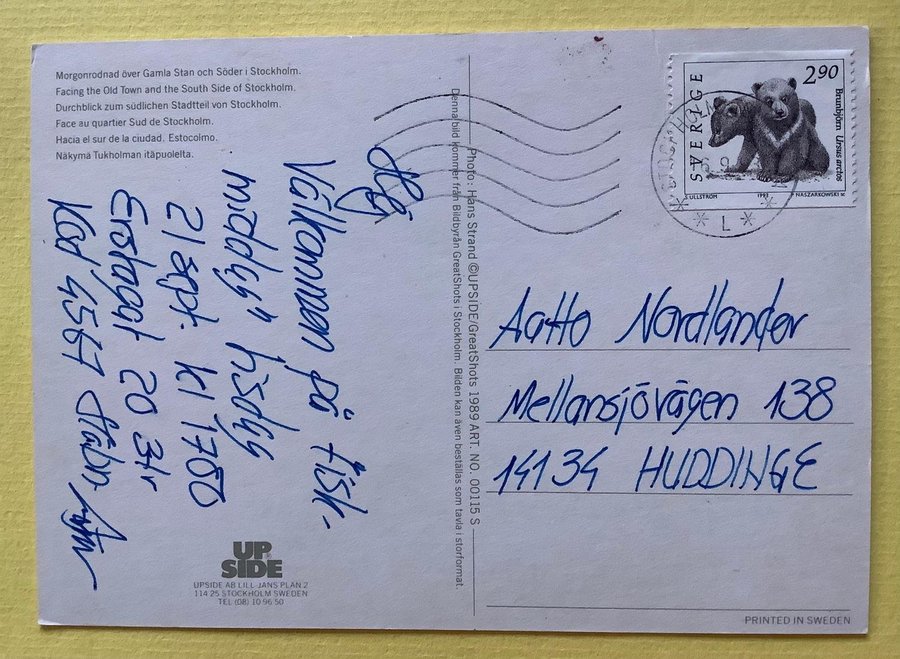 Morgonrodnad över Gamla Stan och Söder i Stockholm.
Facing the Old Town and the South Side of Stockholm.
Durchblick zum südlichen Stadtteil von Stockholm.
Face au quartier Sud de Stockholm.
Hacia el sur de la ciudad. Estocolmo.
Näkymä Tukholman itäpuolelta.
Hej
Välkommen på fisk.
middag
21 sept. kl 1700
Erstagat 20 3tr
Kod 4567
UPSIDE
UPSIDE AB LILL-JANS PLAN 2
114 25 STOCKHOLM SWEDEN
TEL (08) 10 96 50
Denna bild kommer från Bildbyrån GreatShots i Stockholm. Bilden kan även beställas som tavla i storformat.
Photo: Hans Strand ©UPSIDE/GreatShots 1989 ART. NO. 00115 S
SVERIGE
2.90
Brunbjörn Ursus arctos
G ULLSTRÖM 1993 NASZARKOWSKI sc
L
Aatto Nordlander
Mellansjövägen 138
14134 HUDDINGE
PRINTED IN SWEDEN